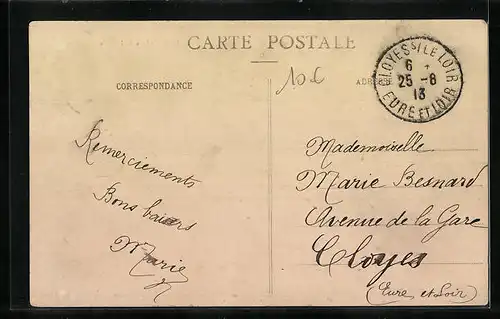 CARTE POSTALE
CORRESPONDANCE
ADRESSE
CLOYES S/ LE LOIR
6
25 - 8
13
EURE ET LOIR
Remerciements
Bons baisers
Marie
Mademoiselle
Marie Besnard
Avenue de la Gare
Cloyes
(Eure et Loir)